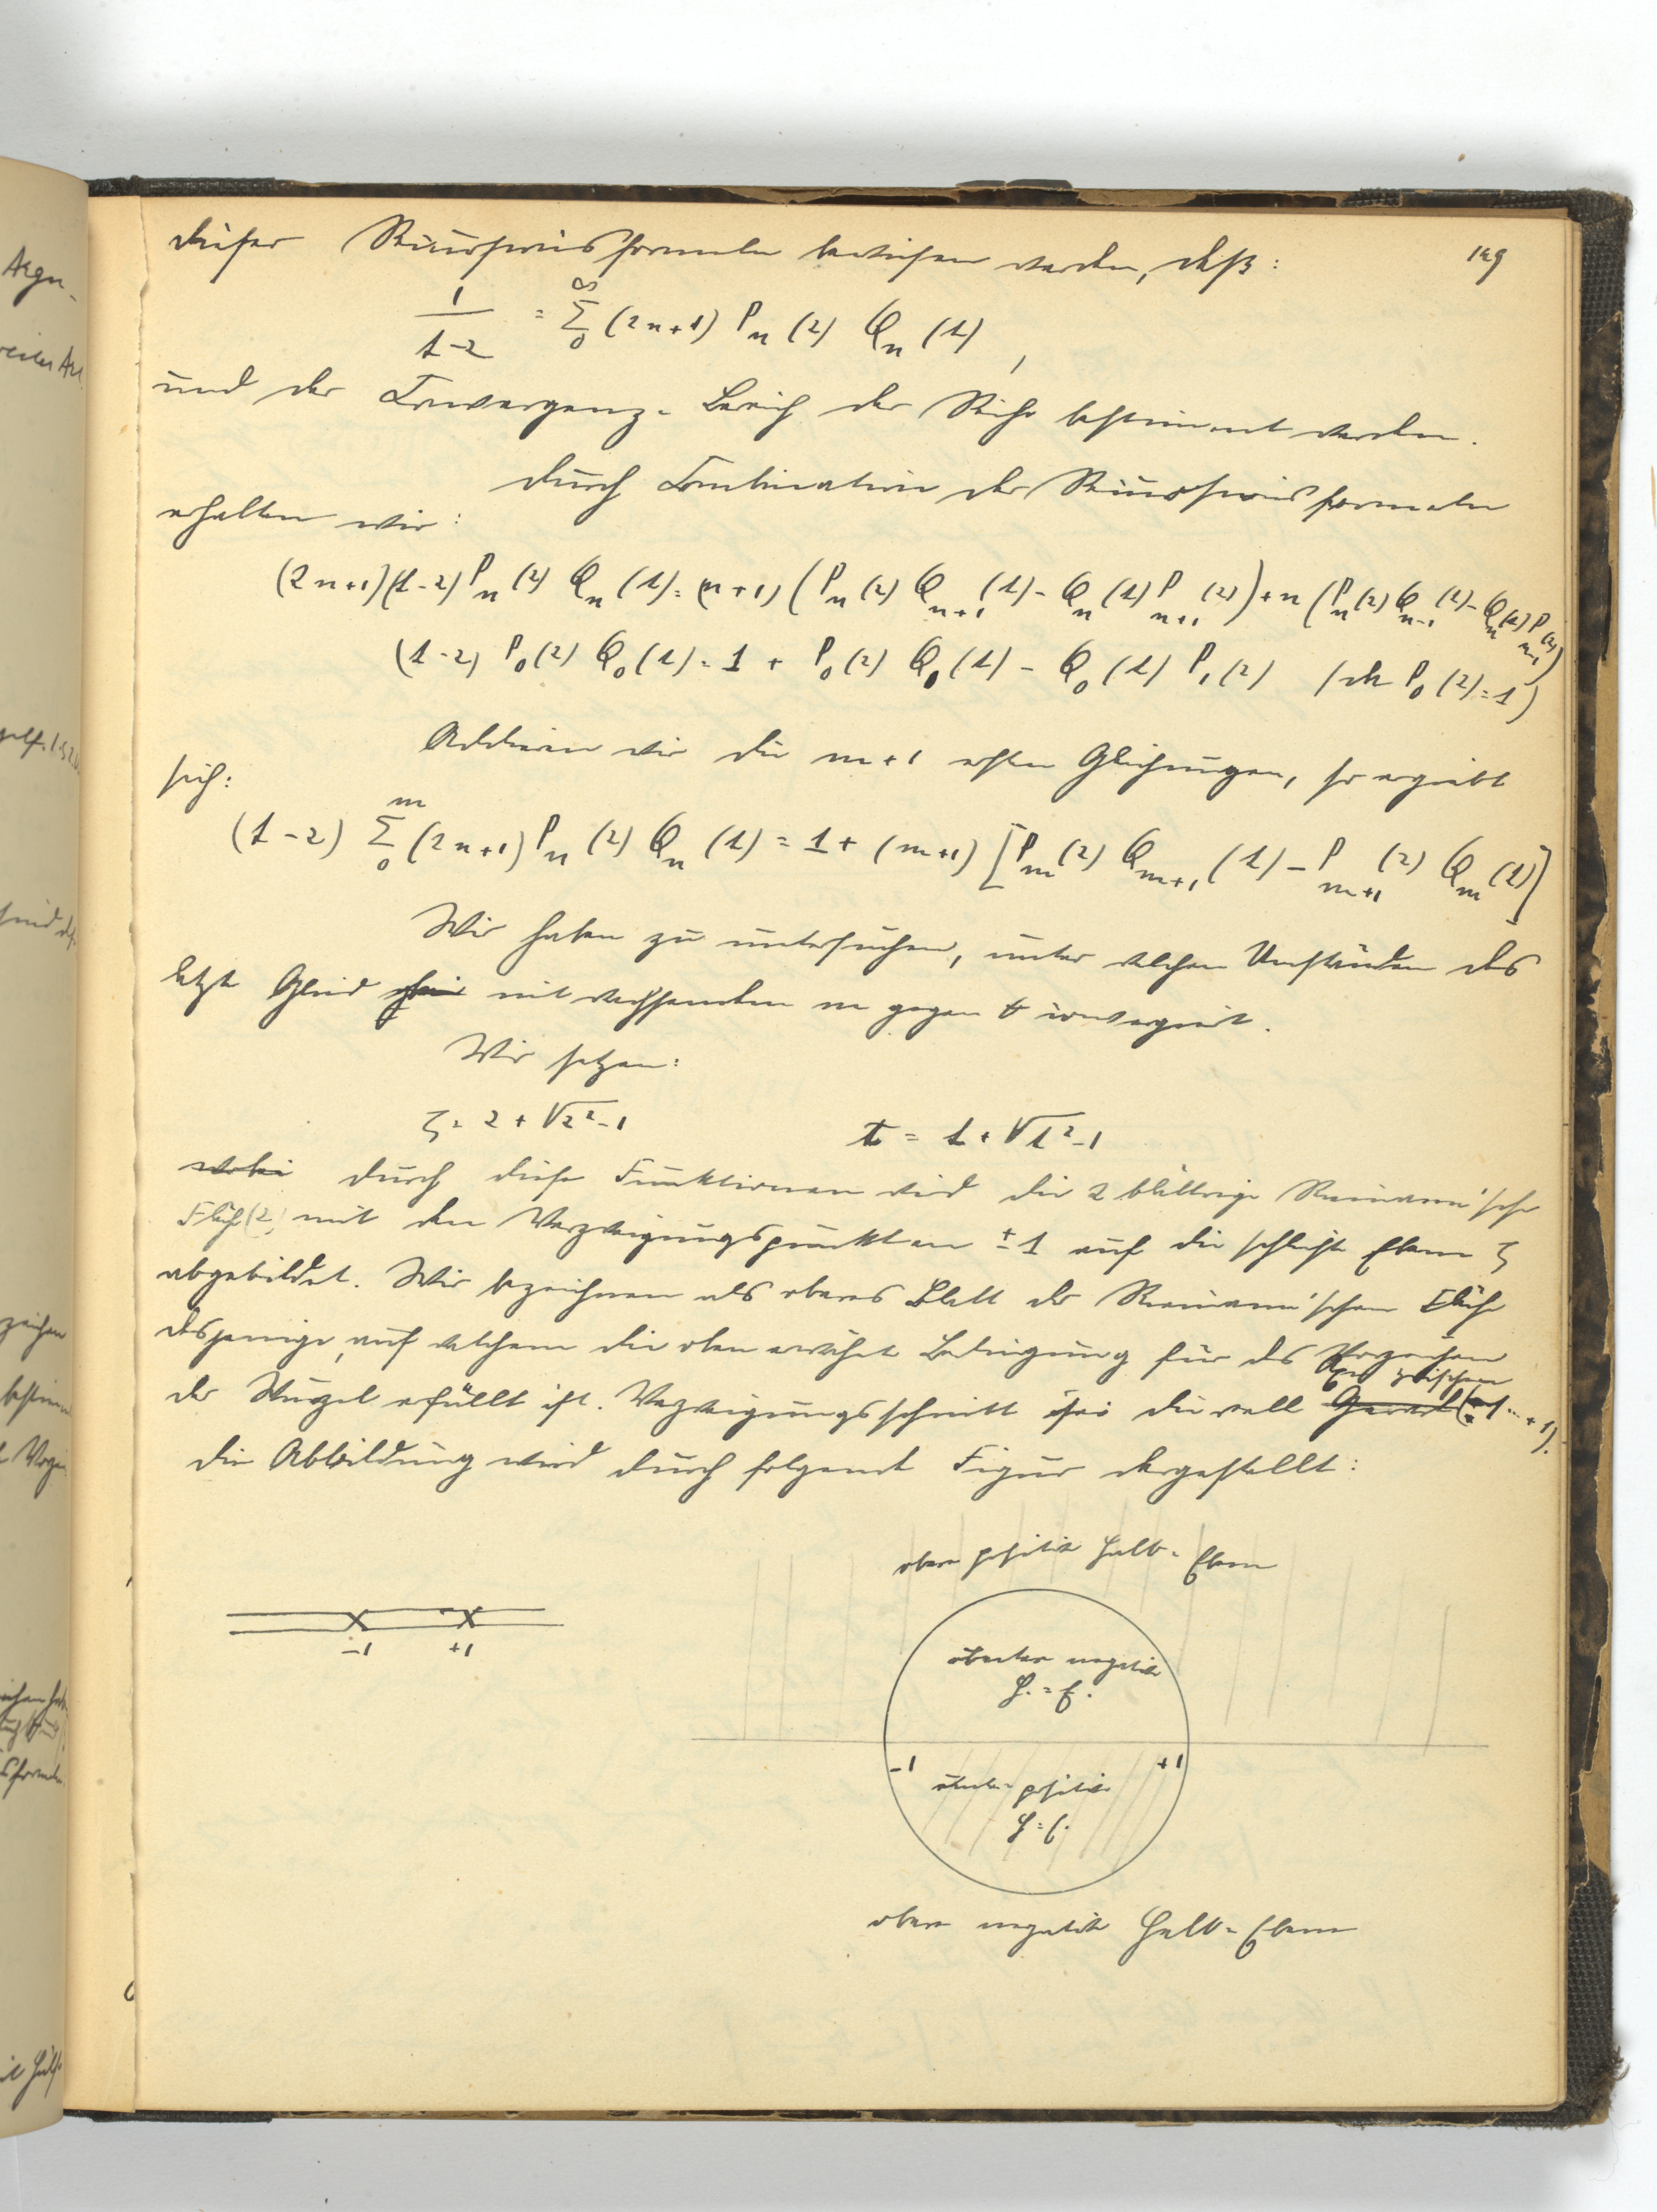 dieser Recursionsformeln bewiesen werden, daß:
129
1/(t-z) = ∞ Σ 0 (2n+1) Pn(z) Qn(t),
und der Convergenz-Bereich der Reihe bestimmt werden.
Durch Combination der Recursionsformeln
erhalten wir:
(2n+1)(t-z) Pn(z) Qn(t) = (n+1) (Pn(z) Qn+1(t) - Qn(t) Pn+1(z)) + n (Pn(z) Qn-1(t) - Qn(t) Pn-1(z))
(t-z) P0(z) Q0(t) = 1 + P0(z) Q1(t) - Q0(t) P1(z) (da P0(z) = 1)
Addieren wir die m+1 ersten Gleichungen, so ergiebt
sich:
(t-z) m Σ 0 (2n+1) Pn(z) Qn(t) = 1 + (m+1) [Pm(z) Qm+1(t) - Pm+1(z) Qm(t)]
Wir haben zu untersuchen, unter welchen Umständen das
letzte Glied mit wachsendem m gegen 0 convergiert.
Wir setzen:
ζ = z + √z²-1 t = t + √t²-1
wobei durch diese Funktionen wird die 2 blättrige Riemann'sche
Fläche (z) mit den Verzweigungspunkten ± 1 auf die schlichte Ebene ζ
abgebildet. Wir bezeichnen als oberes Blatt der Riemann'schen Fläche
dasjenige, auf welchem die oben erwähnte Bedingung für das Vorzeichen
der Wurzel erfüllt ist. Verzweigungsschnitt sei die reelle Gerade Axe zwischen (-1...+1).
Die Abbildung wird durch folgende Figur dargestellt:
obere positive Halb-Ebene
-1 +1
untere negative
H.-E.
-1 +1
untere positive
H-E.
obere negative Halb-Ebene